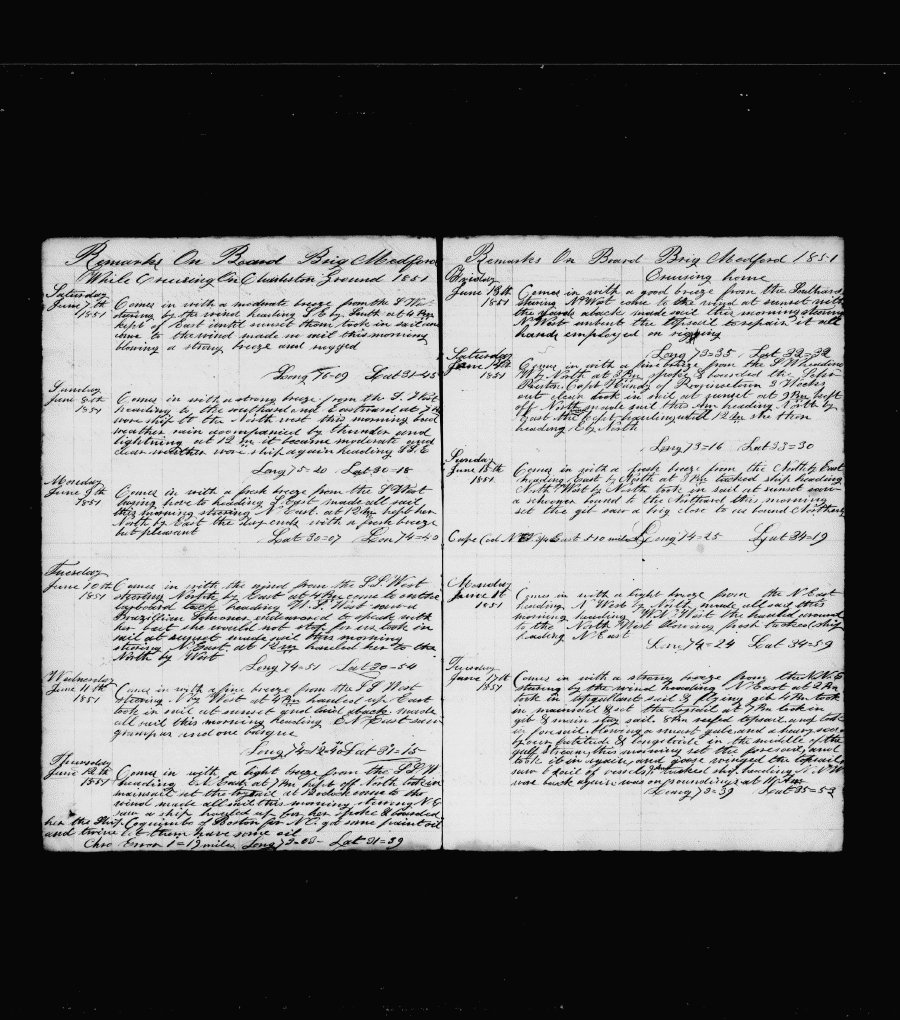 Remarks On Board Brig Medford
While Cruising On Charleston Ground 1851
Saturday
June 7th 1851
Comes in with a moderate breeze from the S West
stering by the wind heading S E by South at 4 Pm
kept of East until sunset them took in sail and
come to the wind made in sail this morning
blowing a strong breeze and rugged
Long 76=09 Lat 31=45
Sunday
June 8th 1851
Comes in with a strong breeze from the S West
heading to the southard and Eastward at 7
wore ship to the North west this morning bad
weather rain accompanied by thunder and
lightning at 12 m it became moderate and
clear weather wore ship again heading S S E
Long 75=20 Lat 30=18
Monday
June 9th 1851
Comes in with a fresh breeze from the S West
laying hove to heading S East made all sail
this morning stering S East at 12 m kept her
North by East the day ends with a fresh breeze
but pleasant
Lat 30=07 Lon 74=40
Tuesday
June 10th 1851
Comes in with the wind from the S S West
stering North by East at 4 Pm come to on the
larboard tack heading W S West saw a
Brazillian Schooner endeavored to speak with
her but she would not stop for us took in
sail at sunset made sail this morning
stering N East at 12 m hauled her to the
North by West
Long 74=51 Lat 30=54
Wednesday
June 11th 1851
Comes in with a fine breeze from the S S West
stering N by West at 4 Pm hauled up East
took in sail at sunset and laid aback made
all sail this morning heading E N East saw
grampus and one barque
Long 74=12=40 Lat 31=15
Thursday
June 12th 1851
Comes in with a light breeze from the S S W
heading East at 7 Pm kept off North took in
mainsail at
wind made all sail this morning stering N E
saw a ship hauled up for her spoke & boarded
her the Ship Coquimbo of Boston for N O got some paint oil
and twine let them have some oil
Chro Error 1=19 miles Long 73=08 Lat 31=39
Remarks On Board Brig Medford 1851
Cruising home
Friday
June 13th 1851
Comes in with a good breeze from the Southard
stering N West come to the wind at sunset with
the yards aback made sail this morning stering
N West unbent the topsail to repair it all
hands employed on rigging
Long 73=35 Lat 32=32
Saturday
June 14th 1851
Comes in with a fine breeze from the S W heading
N by North at 3 Pm spoke & boarded the
Capt Handy of Provincetown 3 Weeks
out clean took in sail at sunset at 9 Pm kept
off North made sail this Am heading North by
East by North
until 12 m she then
heading E by North
Long 73=16 Lat 33=30
Sunday
June 15th 1851
Comes in with a fresh breeze from the North by East
heading East by North at 3 Pm tacked ship heading
North West by North took in sail at sunset saw
a schooner bound to the Southard this morning
set the gib saw a brig close to us bound Northerly
Cape Cod N East 510 miles Long 74=25 Lat 34=19
Monday
June 16 1851
Comes in with a light breeze from the N East
heading N West by North made all sail this
morning heading West the hauled around
to the North West blowing fresh tacked ship
heading N East
Lon 74=24 Lat 34=59
Tuesday
June 17th 1851
Comes in with a strong breeze from the N N E
stering by the wind heading N East at 2 Pm
took in topgallant sail & flying gib 4 Pm took
in mainsail & set the trysail at 7 Pm took in
gib & main stay sail 8 Pm reefed topsail and took
in foresail blowing a smart gale and a heavy sea
by our latitude & longitude in the middle of the
gulf stream this morning set the foresail and
took it in again and goose winged the topsail
saw 6 sail of vessels tacked ship heading N N W
wore back again was on soundings at 10 Am
Long 73=39 Lat 35=53